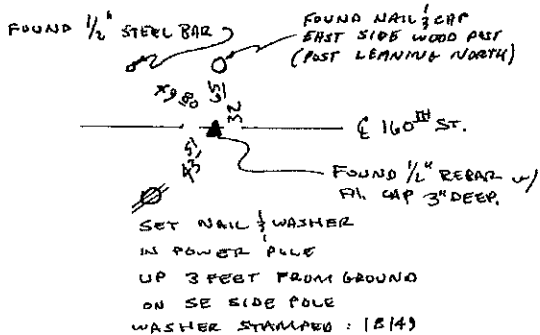 FOUND 1/2" STEEL BAR
FOUND NAIL & CAP
EAST SIDE WOOD POST
(POST LEANING NORTH)
℄ 160TH ST.
FOUND 1/2" REBAR W/
AL. CAP 3" DEEP.
SET NAIL & WASHER
IN POWER POLE
UP 3 FEET FROM GROUND
ON SE SIDE POLE
WASHER STAMPED: 18149